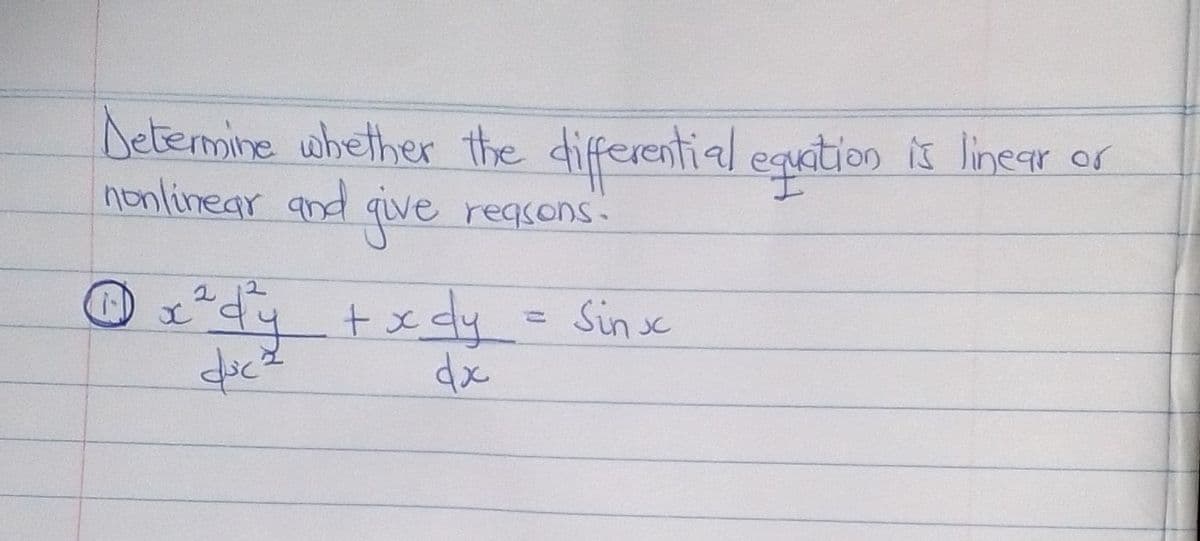 Determine whether the differential equation is linear or
nonlinear and give reasons.
(i) x² d²y/dx² + x dy/dx = Sin x